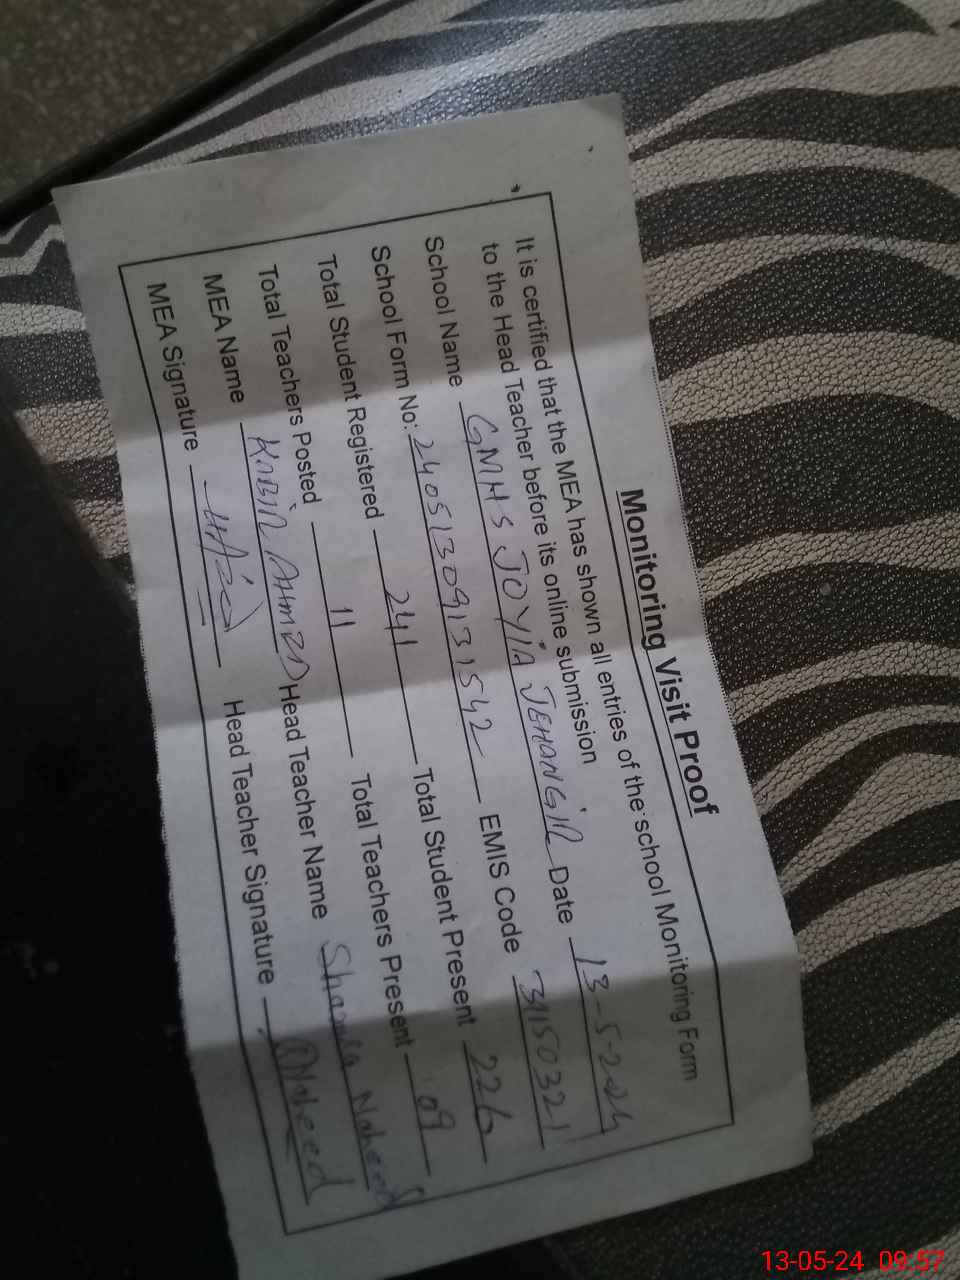 Monitoring Visit Proof
It is certified that the MEA has shown all entries of the school Monitoring Form
to the Head Teacher before its online submission
School Name GMHS JOYIA JEHANGIR Date 13-5-2024
School Form No: 24051309131542 EMIS Code 31150321
Total Student Registered 241 Total Student Present 226
Total Teachers Posted 11 Total Teachers Present 09
MEA Name KABIR AHMED Head Teacher Name Naheed
MEA Signature Head Teacher Signature Naheed
13-05-24 09:57